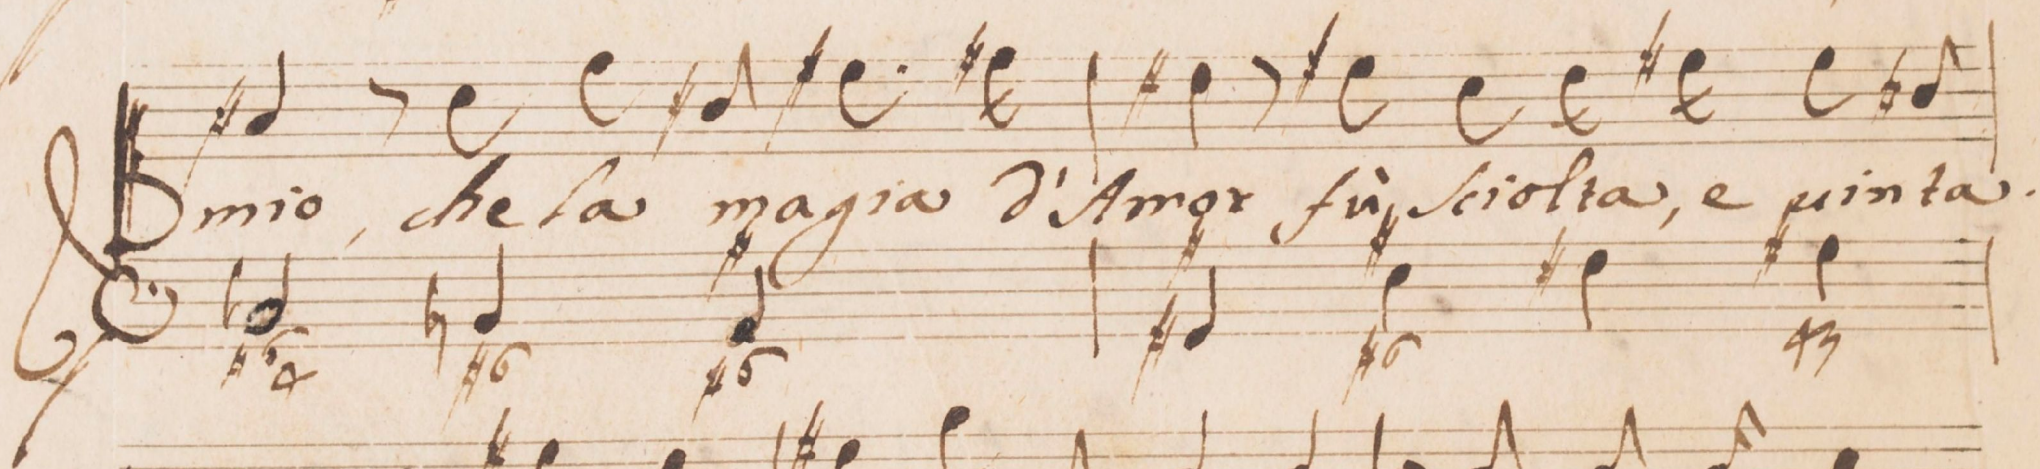 mio, che la magia d'Amor fù sciolta, e uinta.
6 4 6 6
6 43